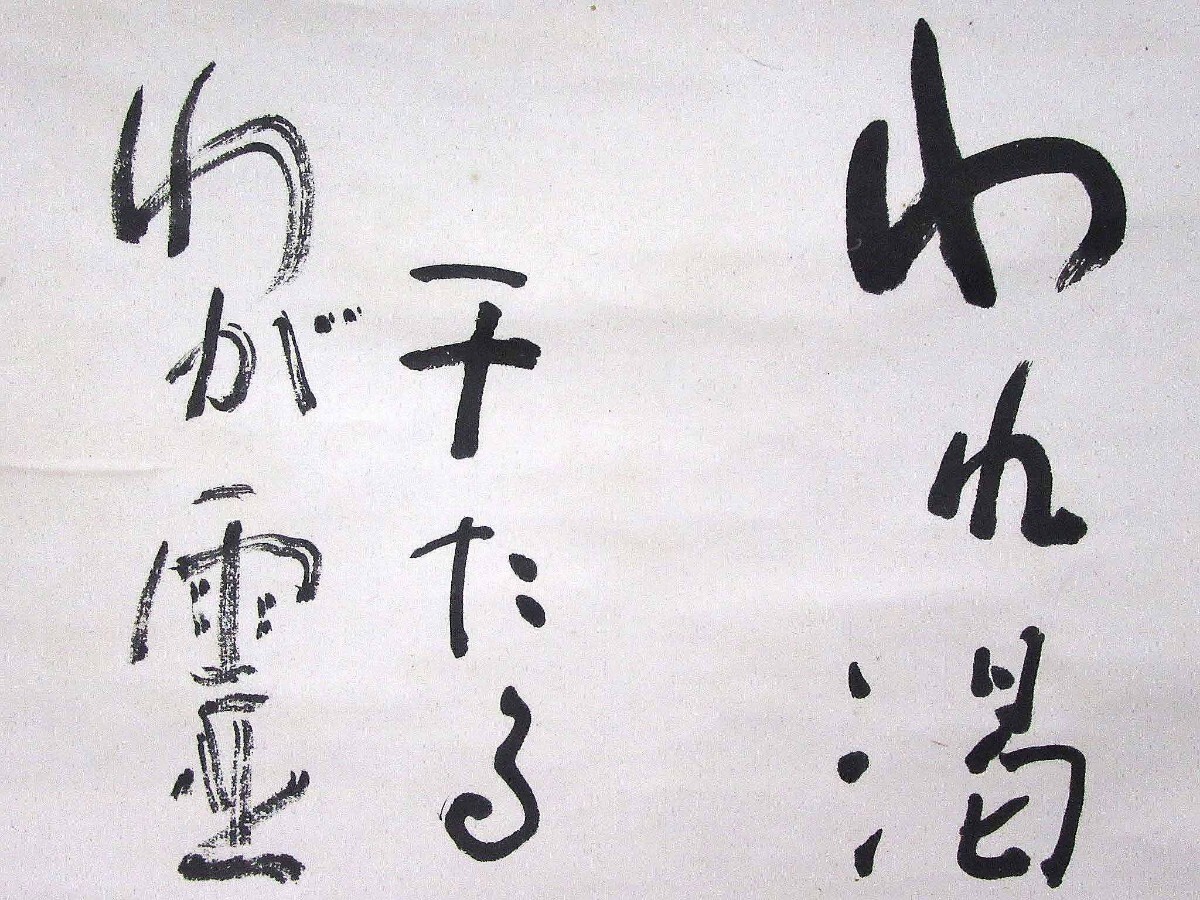 われ渇
干たる
わが霊